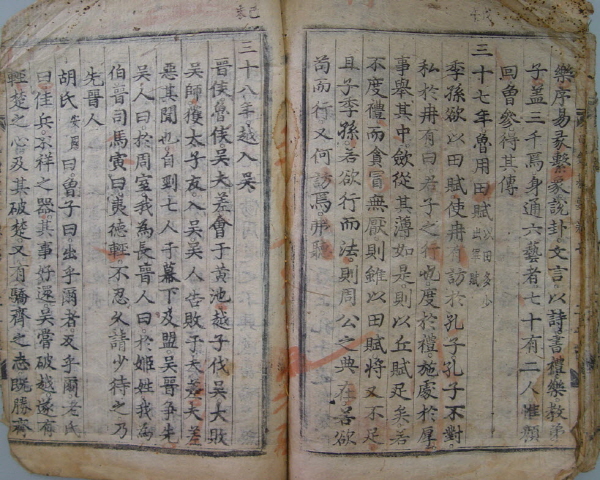 樂序易彖繫象說卦文言以詩書禮樂教弟
子盖三千焉身通六藝者七十有二人惟顔
回曾參得其傳
三十七年魯用田賦 以田多少
季孫欲以田賦使冉有訪於孔子孔子不對
私於冉有曰君子之行也度於禮施處於厚
事舉其中斂從其薄如是則以丘賦足矣若
不度禮而貪冒無厭則雖以田賦將又不足
且子季孫若欲行而法則周公之典在若欲
苟而行又何訪焉弗聽
三十八年越入吳
晉侯魯侯吳夫差會于黃池越子伐吳大敗
吳師獲太子友入吳吳人告敗于夫差夫差
惡其聞也自剄七人于幕下及盟吳晉爭先
吳人曰於周室我為長晉人曰於姬姓我為
伯晉司馬寅曰夷德輕不忍久請少待之乃
先晉人
胡氏安國曰曾子曰出乎爾者反乎爾老氏
曰佳兵不祥之器其事好還吳嘗破越遂有
輕楚之心及其破楚又有驕齊之志旣勝齊